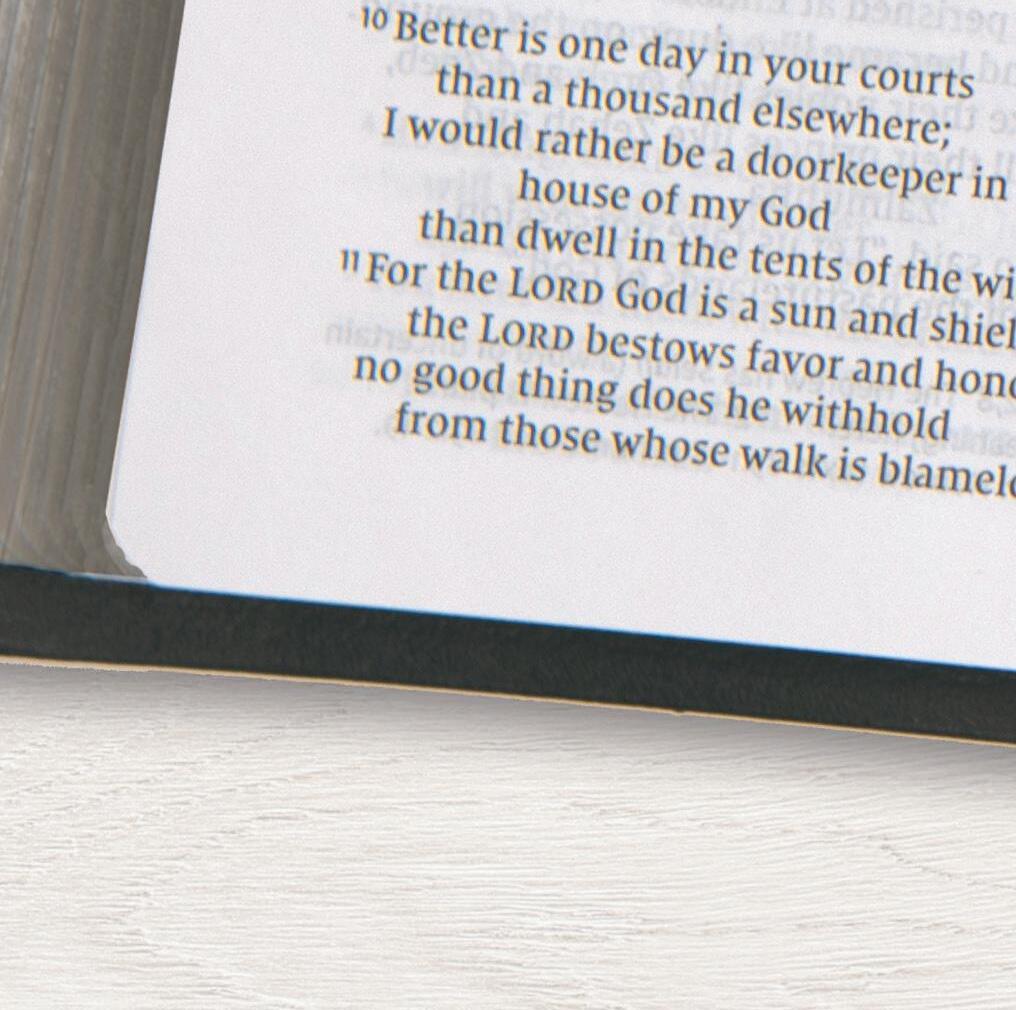 10 Better is one day in your courts
than a thousand elsewhere;
I would rather be a doorkeeper in
house of my God
than dwell in the tents of the wi
11 For the LORD God is a sun and shiel
the LORD bestows favor and hono
no good thing does he withhold
from those whose walk is blamele